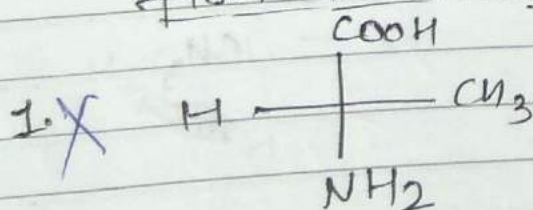 COOH
1. X H CH3
NH2